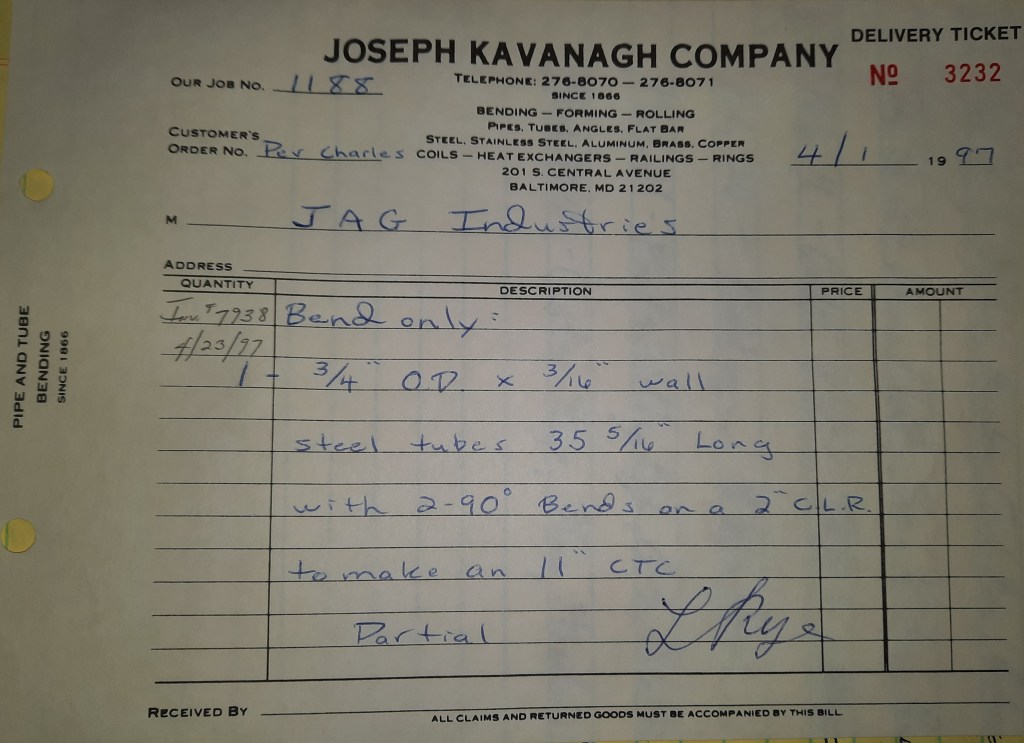 DELIVERY TICKET
JOSEPH KAVANAGH COMPANY
Nº 3232
OUR JOB NO. 1188
TELEPHONE: 276-8070 — 276-8071
SINCE 1866
BENDING — FORMING — ROLLING
PIPES, TUBES, ANGLES, FLAT BAR
CUSTOMER'S
ORDER NO. Per Charles
STEEL, STAINLESS STEEL, ALUMINUM, BRASS, COPPER
COILS — HEAT EXCHANGERS — RAILINGS — RINGS
4/1 1997
201 S. CENTRAL AVENUE
BALTIMORE, MD 21202
M JAG Industries
ADDRESS
QUANTITY DESCRIPTION PRICE AMOUNT
Inv. # 7938 Bend only:
4/23/97
1 - 3/4" O.D. x 3/16" wall
steel tubes 35 5/16" Long
with 2-90° Bends on a 2" C.L.R.
to make an 11" CTC
Partial L Rye
RECEIVED BY
ALL CLAIMS AND RETURNED GOODS MUST BE ACCOMPANIED BY THIS BILL
PIPE AND TUBE
BENDING
SINCE 1866